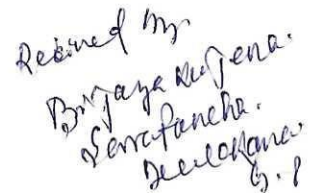 Received by
Bijaya Ku Jena.
Sarapancha.
G.P